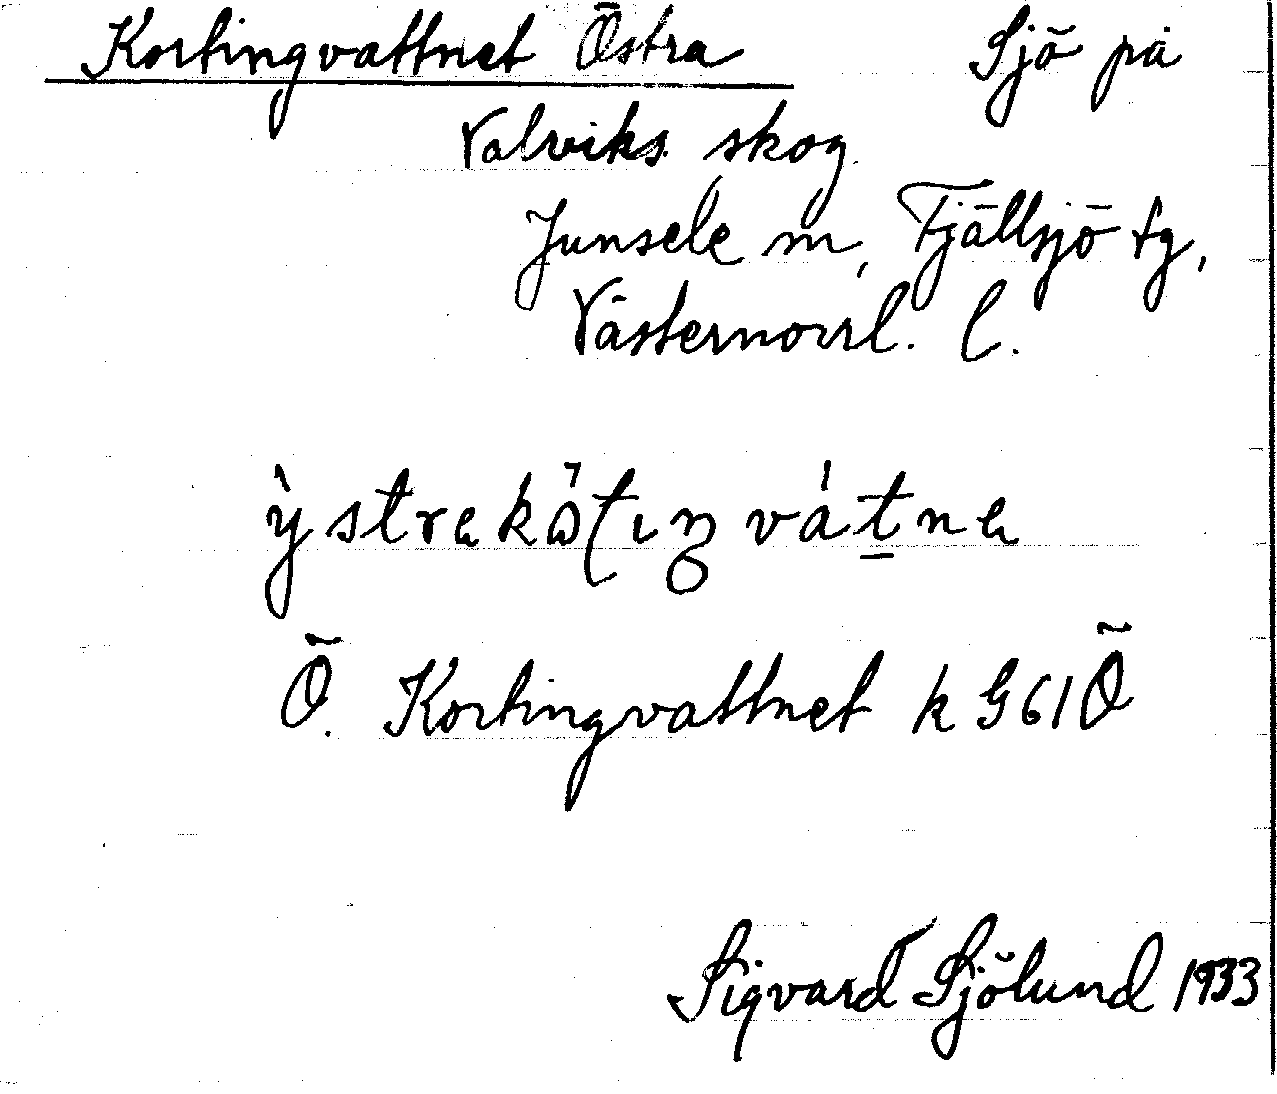 Kortingvattnet Östra Sjö på
Valviks skog
Junsele m, Fjällsjö tg,
Västernorrl. l.
ỳstrekὼʈıŋvát̲ne
Ö. Kortingvattnet k G61Ö
Sigvard Sjölund 1933